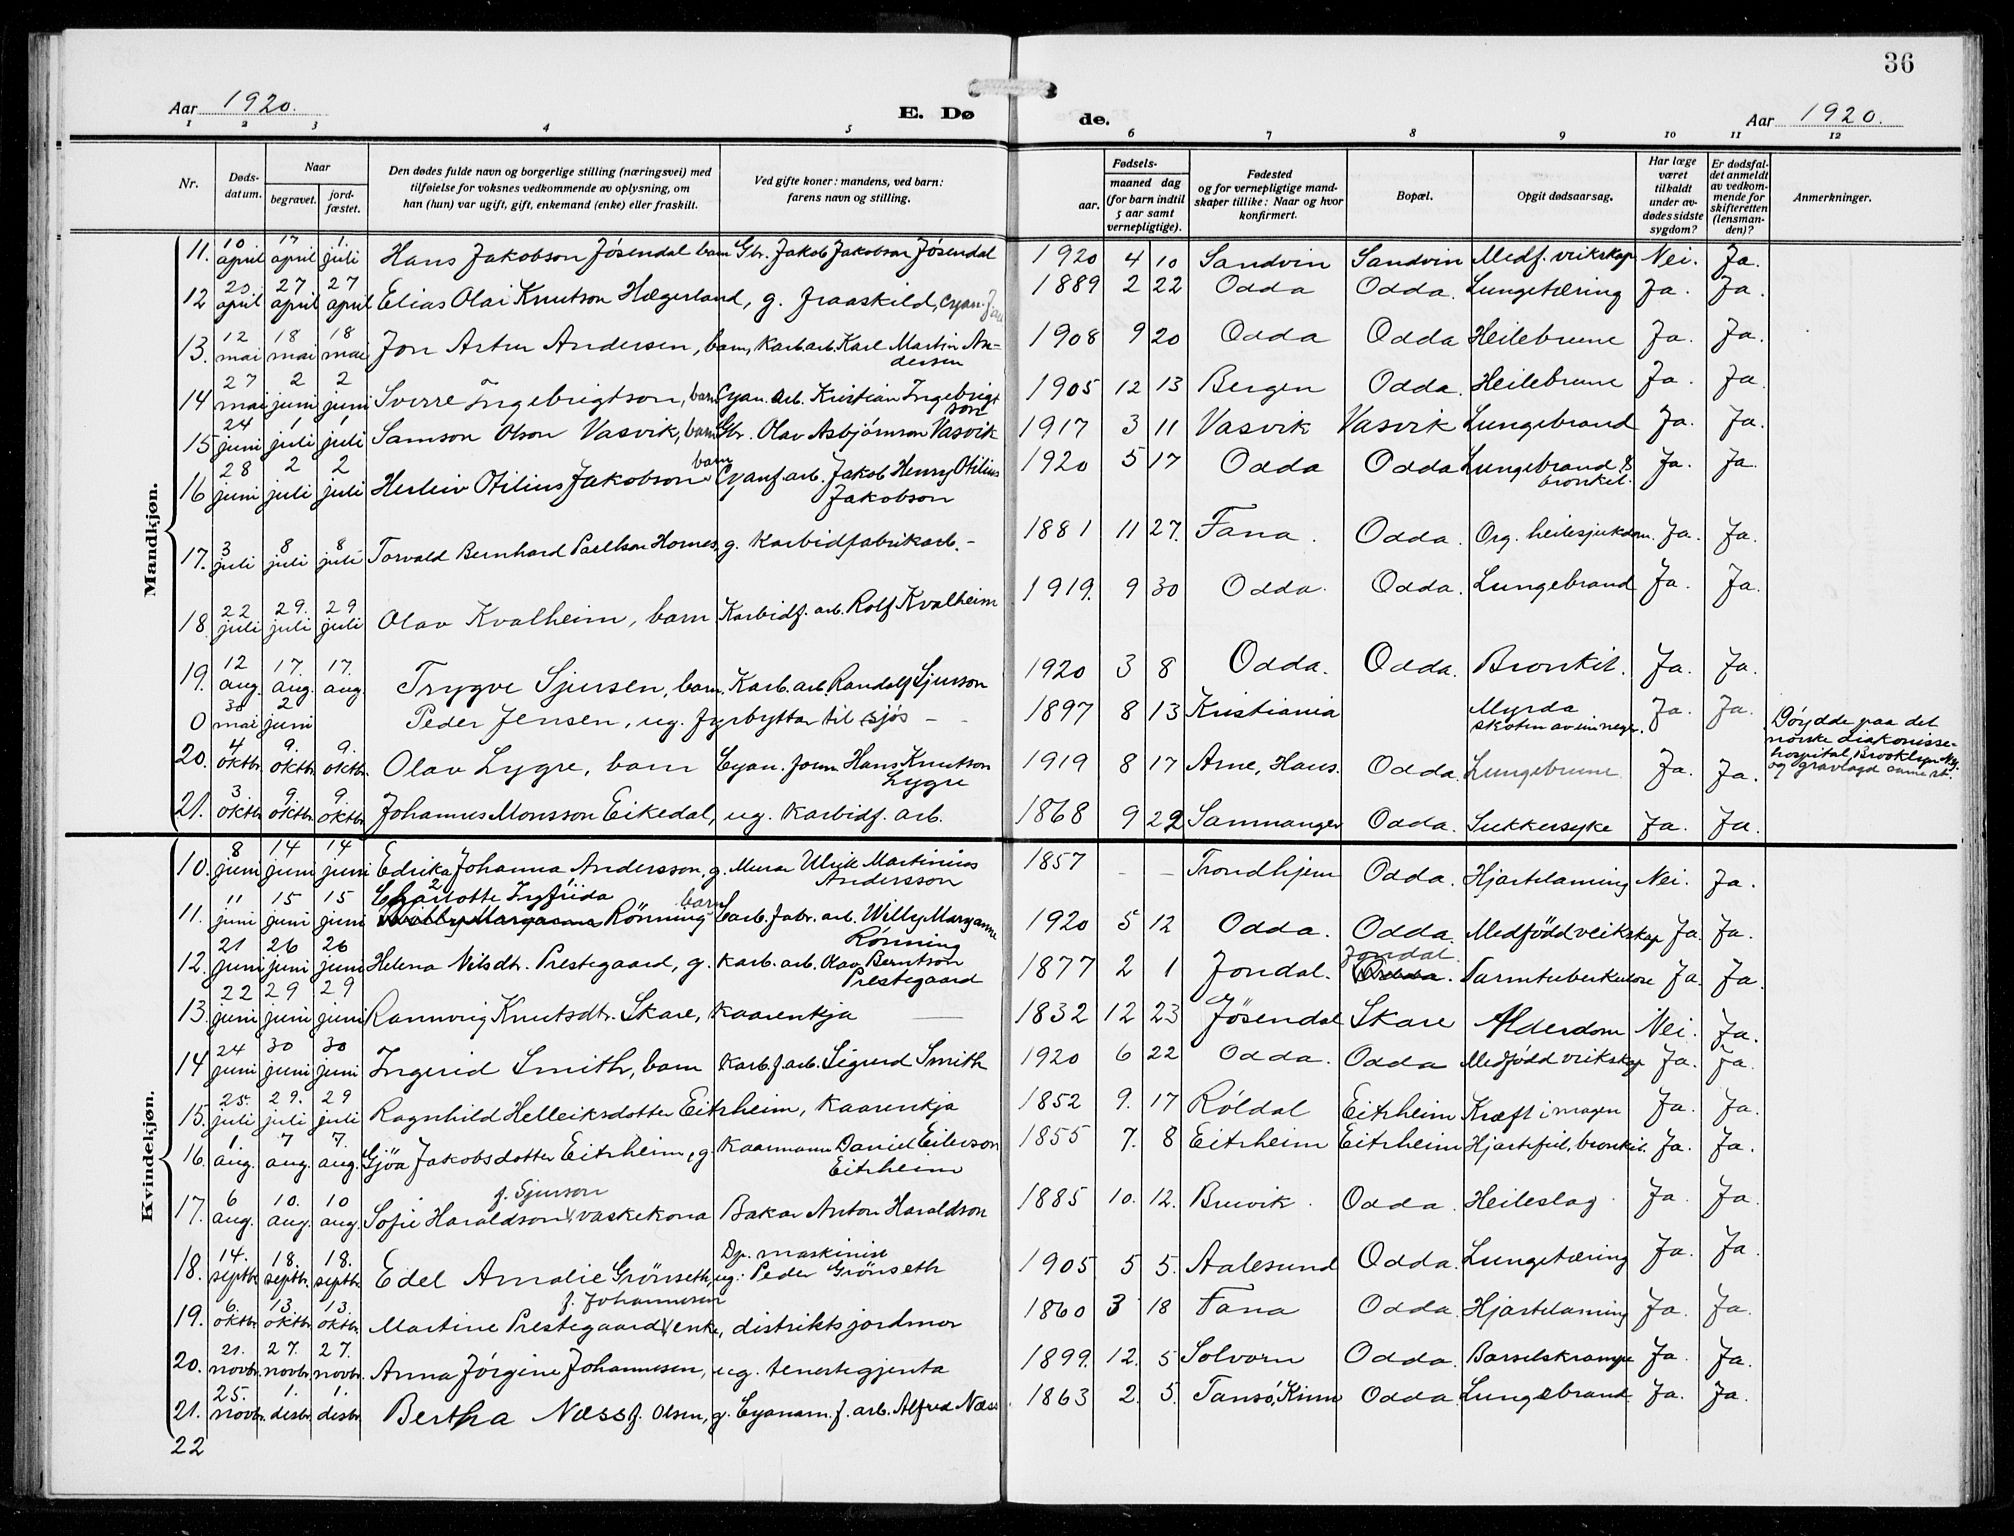 36
Aar 1920. E. Dø de. Aar 1920.
1 2 3 4 5 6 7 8 9 10 11 12
Nr. Døds-datum. Naar begravet. jord-fæstet. Den dødes fulde navn og borgerlige stilling (næringsvei) med tilføielse for voksnes vedkommende av oplysning, om han (hun) var ugift, gift, enkemand (enke) eller fraskilt. Ved gifte koner: mandens, ved barn: farens navn og stilling. Fødsels- aar. maaned dag (for barn indtil 5 aar samt vernepligtige). Fødested og for vernepligtige mandskaper tillike: Naar og hvor konfirmert. Bopæl. Opgit dødsaarsag. Har læge været tilkaldt under avdødes sidste sygdom? Er dødsfaldet anmeldt av vedkommende for skifteretten (lensmanden)? Anmerkninger.
Mandkjøn.
11. 10 april 17 april 1. juli Hans Jakobson Jøsendal barn Gbr. Jakob Jakobson Jøsendal 1920 4 10 Sandvin Sandvin Medf. veikskap Nei. Ja.
12 23. april 27 april 27 april Elias Olai Knutson Hægerland, g. fraaskild, Cyan. 1889 2 22 Odda Odda. Lungetæring Ja. Ja.
13. 12 mai 18 mai 18 mai Jon Artur Andersen, barn, Karb.arb. Karl Martin Andersen 1908 9 20 Odda Odda Heilebrune Ja. Ja.
14 27 mai 2 juni 2 juni Sverre Ingebrigtson, barn Cyan. arb. Kristian Ingebrigtson 1905 12 13 Bergen Odda. Heilebrune Ja. Ja.
15 24 juni 1 juli 1 juli Samson Olson Vasvik, barn Gbr. Olav Asbjørnson Vasvik 1917 3 11 Vasvik Vasvik Lungebrand Ja. Ja.
16 28 juni 2 juli 2 juli Herleiv Otilius Jakobson barn Cyanf. arb. Jakob Henry Otilius Jakobson 1920 5 17 Odda Odda Lungebrand & bronkit. Ja. Ja.
17. 3 juli 8 juli 8 juli Torvald Bernhard Paellson Hornes, g. Karbidfabrikarb. - 1881 11 27. Fana. Odda. Org. heilesjukdom. Ja. Ja.
18. 22 juli 29. juli 29 juli Olav Kvalheim, barn Karbidf. arb. Rolf Kvalheim 1919. 9 30 Odda. Odda. Lungebrand Ja. Ja.
19. 12 aug. 17. aug. 17. aug. Trygve Sjursen, barn. Karb. arb. Randolf Sjurson 1920 3 8 Odda. Odda. Bronkit. Ja. Ja.
0 30 mai 2 juni Peder Jensen, ug. fyrbyttar til sjøs - - 1897 8 13 Kristiania Myrda skoten av ein neger. Ja. Ja. Døydde paa det norske diakonissehospital, Brooklyn N.Y. og gravlagd same st.
20. 4 oktbr. 9. oktbr. 9. oktbr. Olav Lygre, barn Cyan. form. Hans Knutson Lygre 1919 8 17 Arne, Haus. Odda. Lungebrune Ja. Ja.
21. 3 oktbr. 9 oktbr. 9 oktbr. Johannes Monsson Eikedal, ug. Karbidf. arb. 1868 9 22 Samnanger Odda. Sukkersyke Ja. Ja.
Kvindekjøn.
10. 8 juni 14 juni 14 juni Edrika Johanna Andersson, g. Murar Ulrik Martinius Andersson 1857 - - Trondhjem Odda. Hjartelaming Nei. Ja.
11. 11 juni 15 juni 15 juni Charlotte Ingfriida Rönning barn Carb. fabr. arb. Willy Maryanne Rönning 1920 5 12 Odda. Odda. Medfødd veikskap Ja. Ja.
12. 21 juni 26 juni 26 juni Helena Nilsdtr. Prestegaard, g. Karb. arb. Olav Berntson Prestegaard 1877 2 1 Jondal. Jondal Odda. Tarmtuberkulose Ja. Ja.
13. 22 juni 29 juni 29 juni Rannveig Knutsdtr. Skare, kaarenkja 1832 12 23 Jøsendal Skare Alderdom Nei. Ja.
14 24 juni 30 juni 30 juni Ingerid Smith, barn Karb. f. arb. Sigurd Smith 1920 6 22 Odda. Odda Medfødd veikskap Ja. Ja.
15. 25. juli 29. juli 29 juli Ragnhild Helleiksdotter Eitrheim, Kaarenkja 1852 9. 17 Røldal Eitrheim Kræft i magen Ja. Ja.
16. 1. aug. 7 aug. 7. aug. Gjøa Jakobsdotter Eitrheim, g. Kaarmann David Eilevson Eitrheim 1855 7. 8 Eitrheim Eitrheim Hjartefeil, bronkit. Ja. Ja.
17. 6 aug. 10. aug. 10 aug. Sofie Haraldson f. Sjurson vaskekona Bakar Anton Haraldson 1885 10. 12. Bruvik. Odda. Heileslag. Ja. Ja.
18. 14. septbr. 18. septbr. 18. septbr. Edel Amalie Grönseth, ug: Dp. maskinist Peder Grönseth 1905 5 5. Aalesund Odda. Lungetæring Ja. Ja.
19. 6. oktbr. 13. oktbr. 13. oktbr. Martine Prestegaard f. Johannesen enke, distriktsjordmor 1860 3 18 Fana Odda. Hjartelaming Ja. Ja.
20. 21. novbr. 27. novbr. 27. novbr. Anna Jørgine Johannesen, ug. tenestegjenta 1899. 12. 5 Solvorn Odda. Barselskrampe Ja. Ja.
21. 25. novbr. 1. desbr. 1. desbr. Bertha Næss f. Olsen, g. Cyanam. f. arb. Alfred Næss 1863 2. 5. Tansö, Kinn Odda. Lungebrand. Ja. Ja.
22